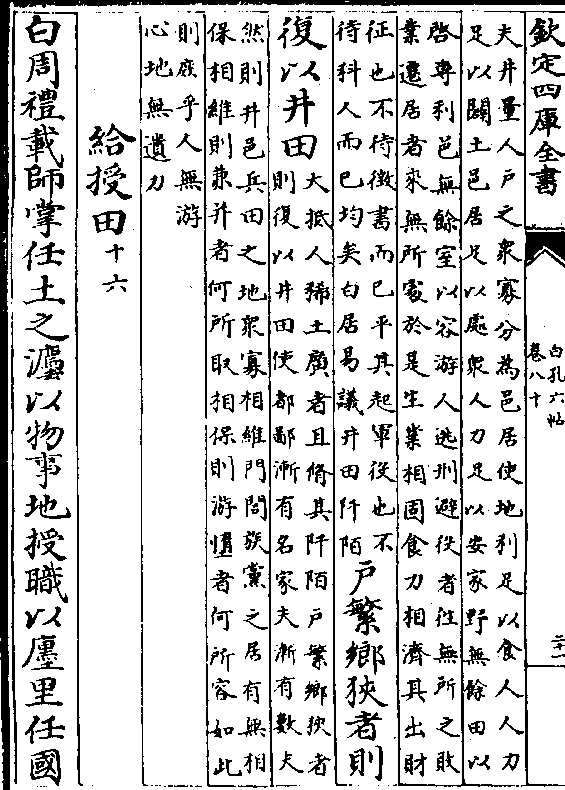 欽定四庫全書
白孔六帖
卷八十
二十一
夫井量人戸之衆寡分為邑居使地利足以食人人力
足以闢土邑居足以處衆人力足以安家野無餘田以
啓專利邑無餘室以容游人逃刑避役者往無所之敗
業遷居者來無所處於是生業相固食力相濟其出財
征也不待徵書而已平其起軍役也不
待料人而已均矣白居易議井田阡陌
戸繁鄉狹者則
復以井田
大抵人稀土廣者且脩其阡陌戸繁鄉狹者
則復以井田使都鄙漸有名家夫漸有數夫
然則井邑兵田之地衆寡相維門閭族黨之居有無相
保相維則兼并者何所取相保則游惰者何所容如此
則庶乎人無游
心地無遺力
給授田十六
白周禮載師掌任土之灋以物事地授職以廛里任國